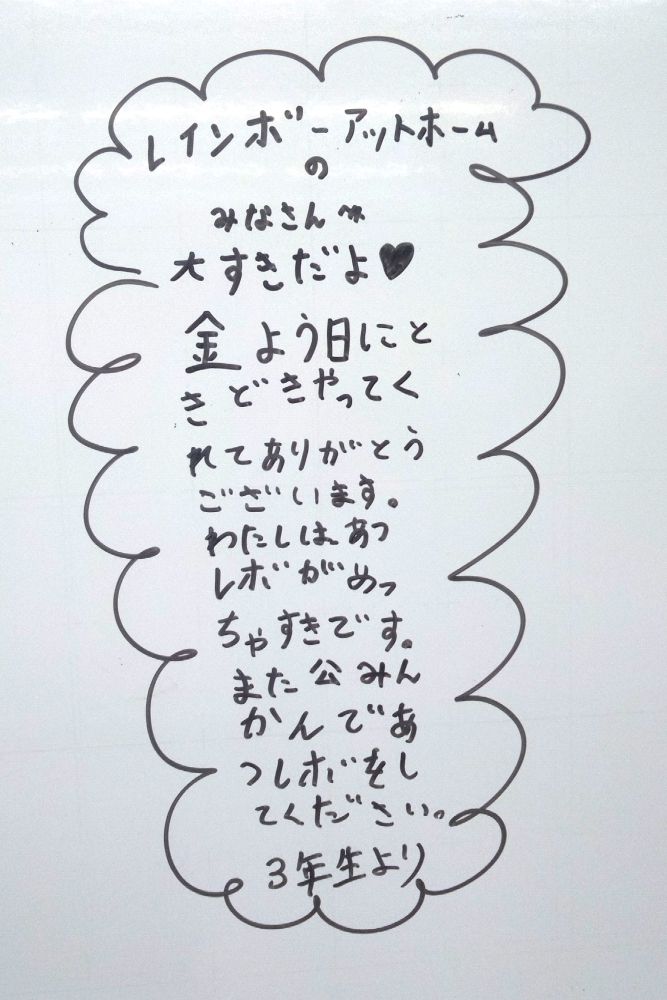 レインボーアットホーム
の
みなさん
大すきだよ♥
金よう日にと
きどきやってく
れてありがとう
ございます。
わたしは、あつ
レボがめっ
ちゃすきです。
また公みん
かんであ
つレボをし
てください。
3年生より